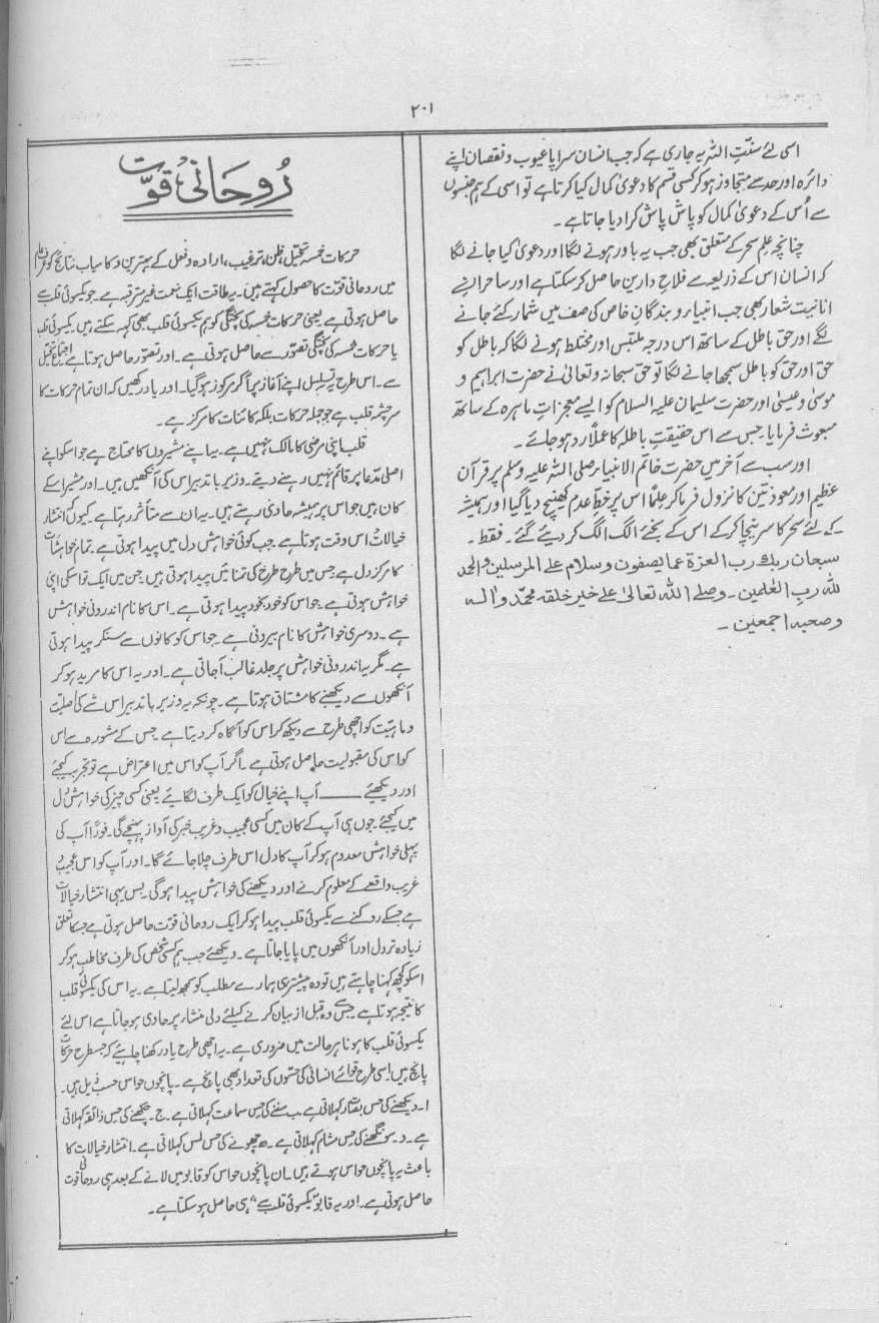 ۲۰۱
اسی لئے سنّتِ الٰہیہ جاری ہے کہ جب انسان سراپا عیوب و نقصان اپنے
دائرہ اور حد سے متجاوز ہوکر کسی قسم کا دعویٰ کمال کیا کرتا ہے تو اسی کے ہم جنسوں
سے اُس کے دعویٰ کمال کو پاش پاش کرا دیا جاتا ہے۔
چنانچہ علم سحر کے متعلق بھی جب یہ باور ہونے لگا اور دعویٰ کیا جانے لگا
کہ انسان اس کے ذریعہ سے فلاحِ دارین حاصل کر سکتا ہے اور ساحر اپنے
انانیت شعار بھی جب انبیاء و بندگانِ خاص کی صف میں شمار کئے جانے
لگے اور حق باطل کے ساتھ اس درجہ ملتبس اور مختلط ہونے لگا کہ باطل کو
حق اور حق کو باطل سمجھا جانے لگا تو حق سبحانہ و تعالیٰ نے حضرت ابراہیم و
موسیٰ و عیسیٰ اور حضرت سلیمان علیہ السلام کو ایسے معجزاتِ ماہرہ کے ساتھ
مبعوث فرمایا جس سے اس حقیقتِ باطلہ کا عملاً رد ہو جائے۔
اور سب سے آخر میں حضرت خاتم الانبیاء صلی اللہ علیہ وسلم پر قرآن
عظیم اور معوذتین کا نزول فرماکر علماً اس پر خطِ عدم کھینچ دیا گیا اور ہمیشہ
کے لئے سحر کا سر نیچا کرکے اس کے بخئے الگ الگ کر دیئے گئے۔ فقط۔
سبحان ربك رب العزة عما يصفون وسلام على المرسلين والحمد
لله رب العٰلمين۔ وصلى الله تعالىٰ على خير خلقه محمد وآلہ
وصحبه اجمعين۔
رُوحانی قوّت
حرکات خمسہ تخیل، ظن، ترغیب، ارادہ و فعل کے بہترین و کامیاب نتائج کو
میں روحانی قوّت کا حصول کہتے ہیں۔ یہ طاقت ایک نعمت غیر مترقبہ ہے۔ جو یکسوئی قلب سے
حاصل ہوتی ہے یعنی حرکات خمسہ کی پختگی کو ہم یکسوئی قلب بھی کہہ سکتے ہیں۔ یکسوئی قلب
یا حرکات خمسہ کی پختگی تصوّر سے حاصل ہوتی ہے۔ اور تصوّر حاصل ہوتا ہے اجتماع تخیل
سے۔ اس طرح یہ تسلسل اپنے آغاز پر آکر مرکوز ہوگیا۔ اور یاد رکھیں کہ ان تمام حرکات کا
سرچشمہ قلب ہے جو جملہ حرکات بلکہ کائنات کا مرکز ہے۔
قلب اپنی مرضی کا مالک نہیں ہے۔ یہ اپنے مشیروں کا محتاج ہے جو اسکو اپنے
اصلی مدعا پر قائم نہیں رہنے دیتے۔ وزیر باتدبیر اس کی آنکھیں ہیں۔ اور مشیر اسکے
کان ہیں جو اس پر ہمیشہ حاوی رہتے ہیں۔ یہ ان سے متأثر رہتا ہے۔ کیونکہ انتشار
خیالات اُس وقت ہوتا ہے جب کوئی خواہش دل میں پیدا ہوتی ہے۔ تمام خواہشات
کا مرکز دل ہے جس میں طرح طرح کی تمنائیں پیدا ہوتی ہیں جن میں ایک تو اسکی اپنی
خواہش ہوتی ہے۔ جو اس کو خود بخود پیدا ہوتی ہے۔ اس کا نام اندرونی خواہش
ہے۔ دوسری خواہش کا نام بیرونی ہے۔ جو اس کو کانوں سے سنکر پیدا ہوتی
ہے۔ مگر یہ اندرونی خواہش پر جلد غالب آجاتی ہے۔ اور یہ اس کا مرید ہوکر
آنکھوں سے دیکھنے کا مشتاق ہوتا ہے۔ چونکہ یہ وزیر باتدبیر اس شے کی اصلیت
و ماہیّت کو اچھی طرح سے دیکھ کر اس کو آگاہ کر دیتا ہے جس کے مشورہ سے اس
کو اس کی مقبولیت حاصل ہوتی ہے۔ اگر آپ کو اس میں اعتراض ہے تو تجربہ کیجئے
اور دیکھئیے —— آپ اپنے خیال کو ایک طرف لگائیے یعنی کسی چیز کی خواہش دل
میں کیجئے جوں ہی آپ کے کان میں کسی عجیب و غریب خبر کی آواز پہنچے گی۔ فوراً آپ کی
پہلی خواہش معدوم ہوکر آپ کا دل اس طرف چلا جائے گا۔ اور آپ کو اس عجیب و
غریب واقعے کے معلوم کرنے اور دیکھنے کی خواہش پیدا ہوگی۔ بس یہی انتشار خیالات
ہے جسکے روکنے سے یکسوئی قلب پیدا ہوکر ایک روحانی قوّت حاصل ہوتی ہے جسکا تعلق
زیادہ تر دل اور آنکھوں میں پایا جاتا ہے۔ دیکھئے جب ہم کسی شخص کی طرف مخاطب ہوکر
اسکو کچھ کہنا چاہتے ہیں تو وہ پیشتر ہی ہمارے مطلب کو سمجھ لیتا ہے۔ یہ اس کی یکسوئی قلب
کا نتیجہ ہوتا ہے جس وہ قبل از بیان کرنے کیلئے دلی منشا پر حاوی ہو جاتا ہے اس لئے
یکسوئی قلب کا ہونا ہر حالت میں ضروری ہے۔ یہ اچھی طرح یاد رکھنا چاہیئے کہ جسطرح حرکات
پانچ ہیں اسی طرح قوائے انسانی کی حسّوں کی تعداد بھی پانچ ہے۔ پانچوں حواس حسب ذیل ہیں۔
ا۔ دیکھنے کی حس بصارت کہلاتی ہے۔ ب۔ سننے کی حس سماعت کہلاتی ہے۔ ج۔ چکھنے کی حس ذائقہ کہلاتی
ہے۔ د۔ سونگھنے کی حس مشام کہلاتی ہے۔ ہ چھونے کی حس لمس کہلاتی ہے۔ انتشار خیالات کا
باعث یہ پانچوں حواس ہوتے ہیں۔ ان پانچوں حواس کو قابو میں لانے کے بعد ہی روحانی قوت
حاصل ہوتی ہے۔ اور یہ قابو "یکسوئی قلب سے" ہی حاصل ہو سکتا ہے۔